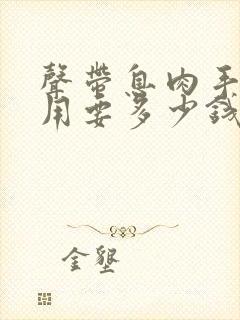 聲帶息肉手
用要多少錢
金墾